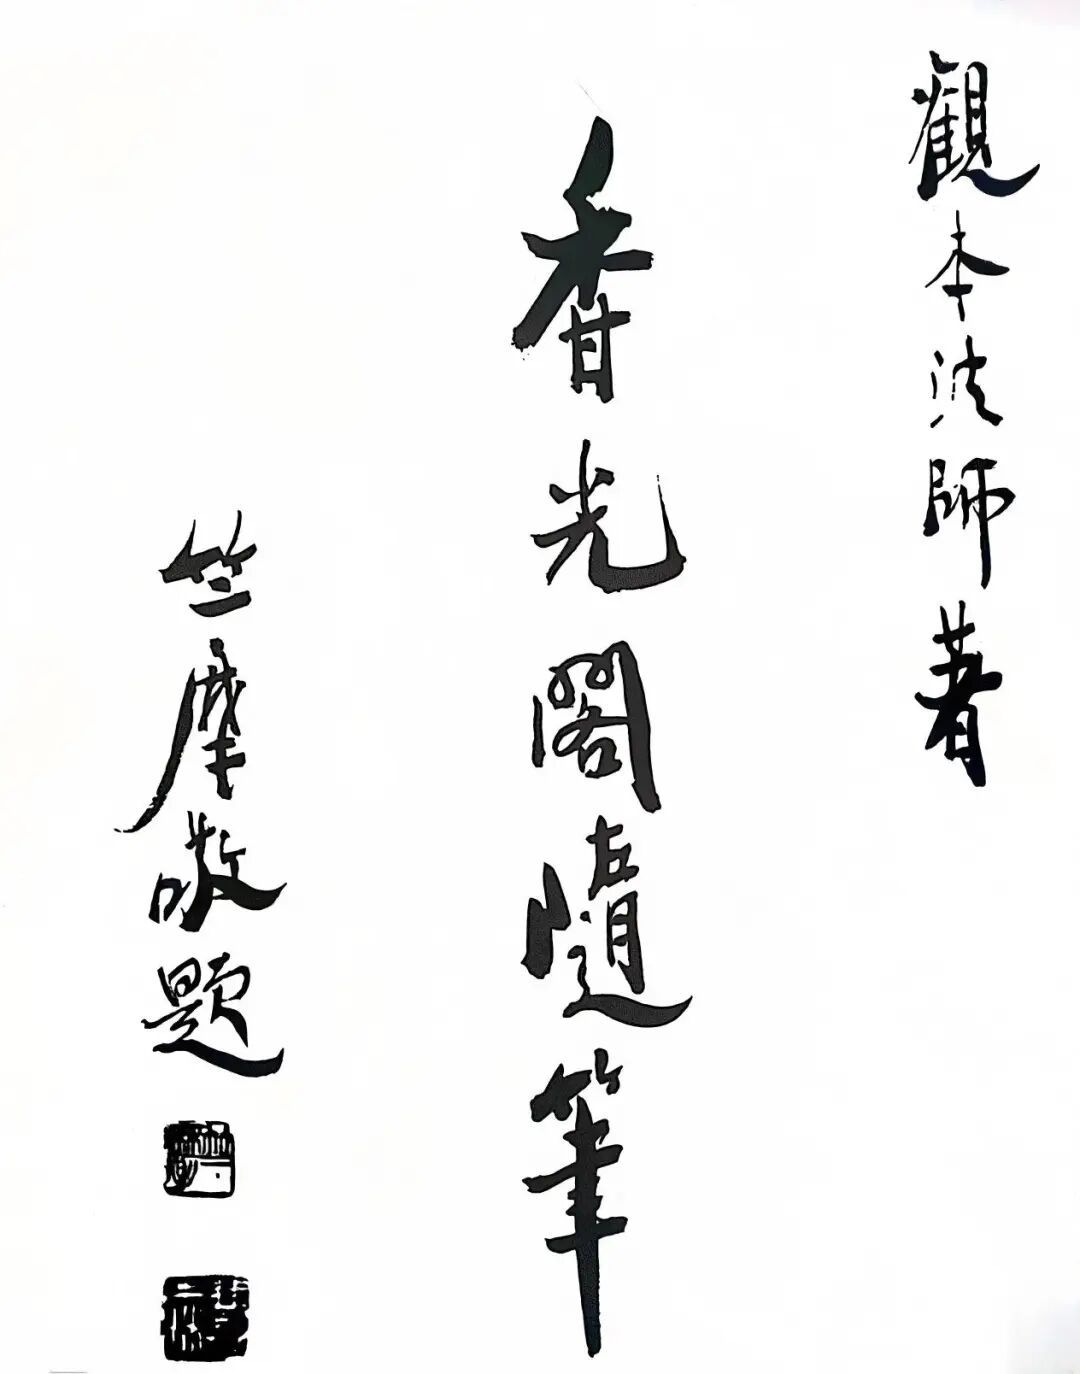 觀本法師著
香光閣隨筆
竺摩敬題